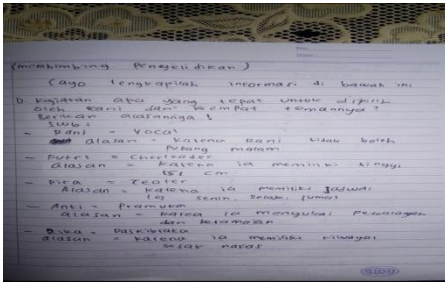 (membimbing Penyelidikan)
(ayo lengkapilah informasi di bawah ini
1) Kegiatan apa yang tepat untuk dipilih
oleh Rani dan keempat temannya?
Berikan alasannya!
Jwb:
- Rani = Vocal
alasan = karena Rani tidak boleh
Pulang malam
- Putri = Cherleader
alasan = karena ia memiliki tinggi
151 cm
- Dira = Teater
Alasan = karena ia memiliki Jadwal
senin, Selasa, Jumat
- Anti = Pramuka
alasan = karea ia menyukai
dan
- Dika = Paskibraka
alasan = karena ia memiliki riwayat
sesak nafas